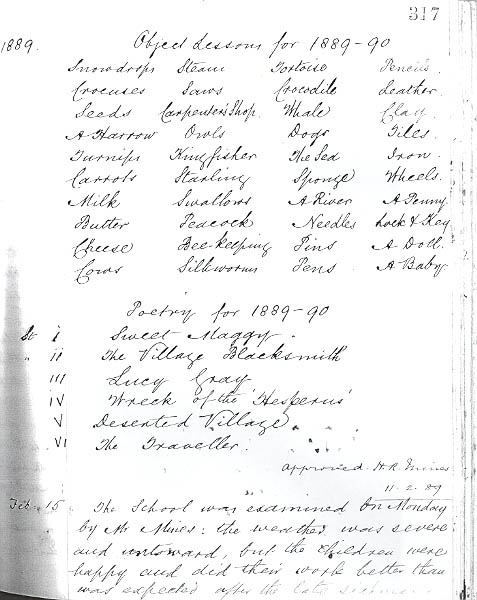 317
1889. Object Lessons for 1889-90
Snowdrops Steam Tortoise Pencils
Crocuses Saws Crocodile Leather
Seeds Carpenter's Shop Whale Clay
A Harrow Owls Dogs Tiles.
Turnips Kingfisher The Sea Iron.
Carrots Starling Sponge Wheels.
Milk Swallows A River A Penny.
Butter Peacock Needles Lock & Key
Cheese Bee-keeping Pins A Doll.
Cows Silkworms Pens A Baby.
Poetry for 1889-90
St i Sweet Maggy.
" ii The Village Blacksmith
iii Lucy Gray
iv Wreck of the 'Hesperus'
v Deserted Village.
vi The Traveller.
Approved H.R.
11.2.89
Feb. 15 The School was examined on Monday
by Mr Mines: the weather was severe
and untoward, but the children were
happy and did their work better than
was expected after the late